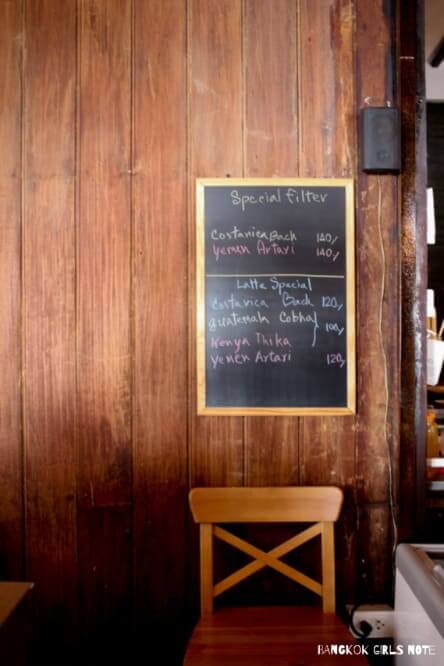 Special Filter
Costarica Bach 140,-
Yemen Artari 140,-
Latte Special
Costarica Bach 120,-
Guatemala Cobha
100,-
Kenya Thika
Yemen Artari 120,-
BANGKOK GIRLS NOTE